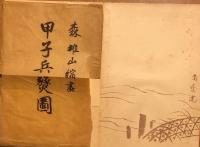 森雄山繪畫
甲子兵燹圖